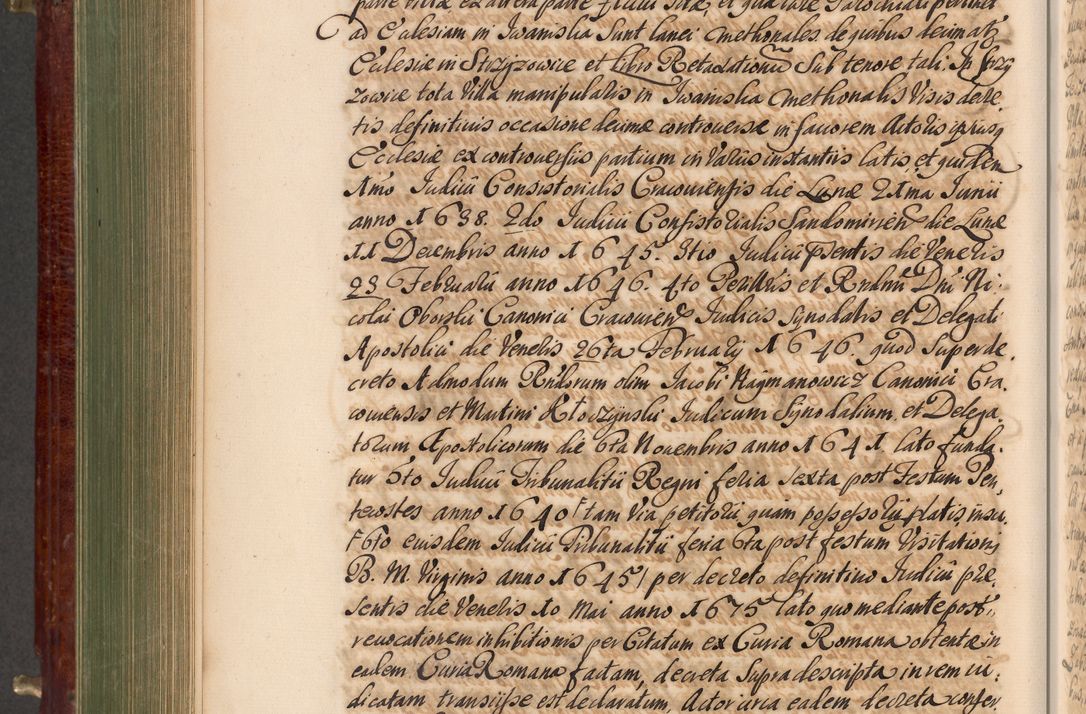 parte Villæ ex altera parte fluvii Sitæ, et quærule Parochiali pertinet
ad Ecclesiam in Iwaniska Sunt lanei Methonales de quibus decimat
Ecclesiæ in Strzyzowice et libro Retaxationum Sub tenore tali: In Strzy
zowice tota Villa manipularis in Iwaniska Methonalis Visis decre
tis definitivis occasione decimæ controversæ in favorem Actoris ejusq
Ecclesiæ ex controversiis partium in Variis instantiis latis, et quidem
Amo Iudicii Consistorialis Cracoviensis die Lunæ 21ma Iunii
anno 1638. 2do Iudicii Consistorialis Sandomirien die Lunæ
11 Decembris anno 1645. 3tio Iudicii Psentis die Veneris
23 Februarii anno 1646. 4to Perillris et Rndmi Dni Ni:
colai Oborski Canonici Cracovien Iudicis Synodalis et Delegati
Apostolici die Veneris 26ta Februarij 1646. quod Super de
creto Admodum Rndorum olim Iacobi Naymanowicz Canonici Cra:
coviensis et Martini Kłoczynski Iudicum Synodalium et Delega
torum Apostolicorum die 6ta Novembris anno 1641 lato funda:
tur 5to Iudicii Tribunalitii Regni feria sexta post Festum Pen,
tecostes anno 1640 tam Via petitorii quam possessorii platis, insu,
6to eiusdem Iudicii Tribunalitii feria 6ta post festum Visitationis
B. M. Virginis anno 1645 / per decreto definitivo Iudicii præ,
sentis die Veneris 10 Mai anno 1675 lato quo mediante post
revocationem inhibitionis per Citatum ex Curia Romana obtentæ in
eadem Curia Romana factam, decreta Supradescripta in rem iu:
dicatam transiisse est declaratum, Actor iuria eadem decreta confer